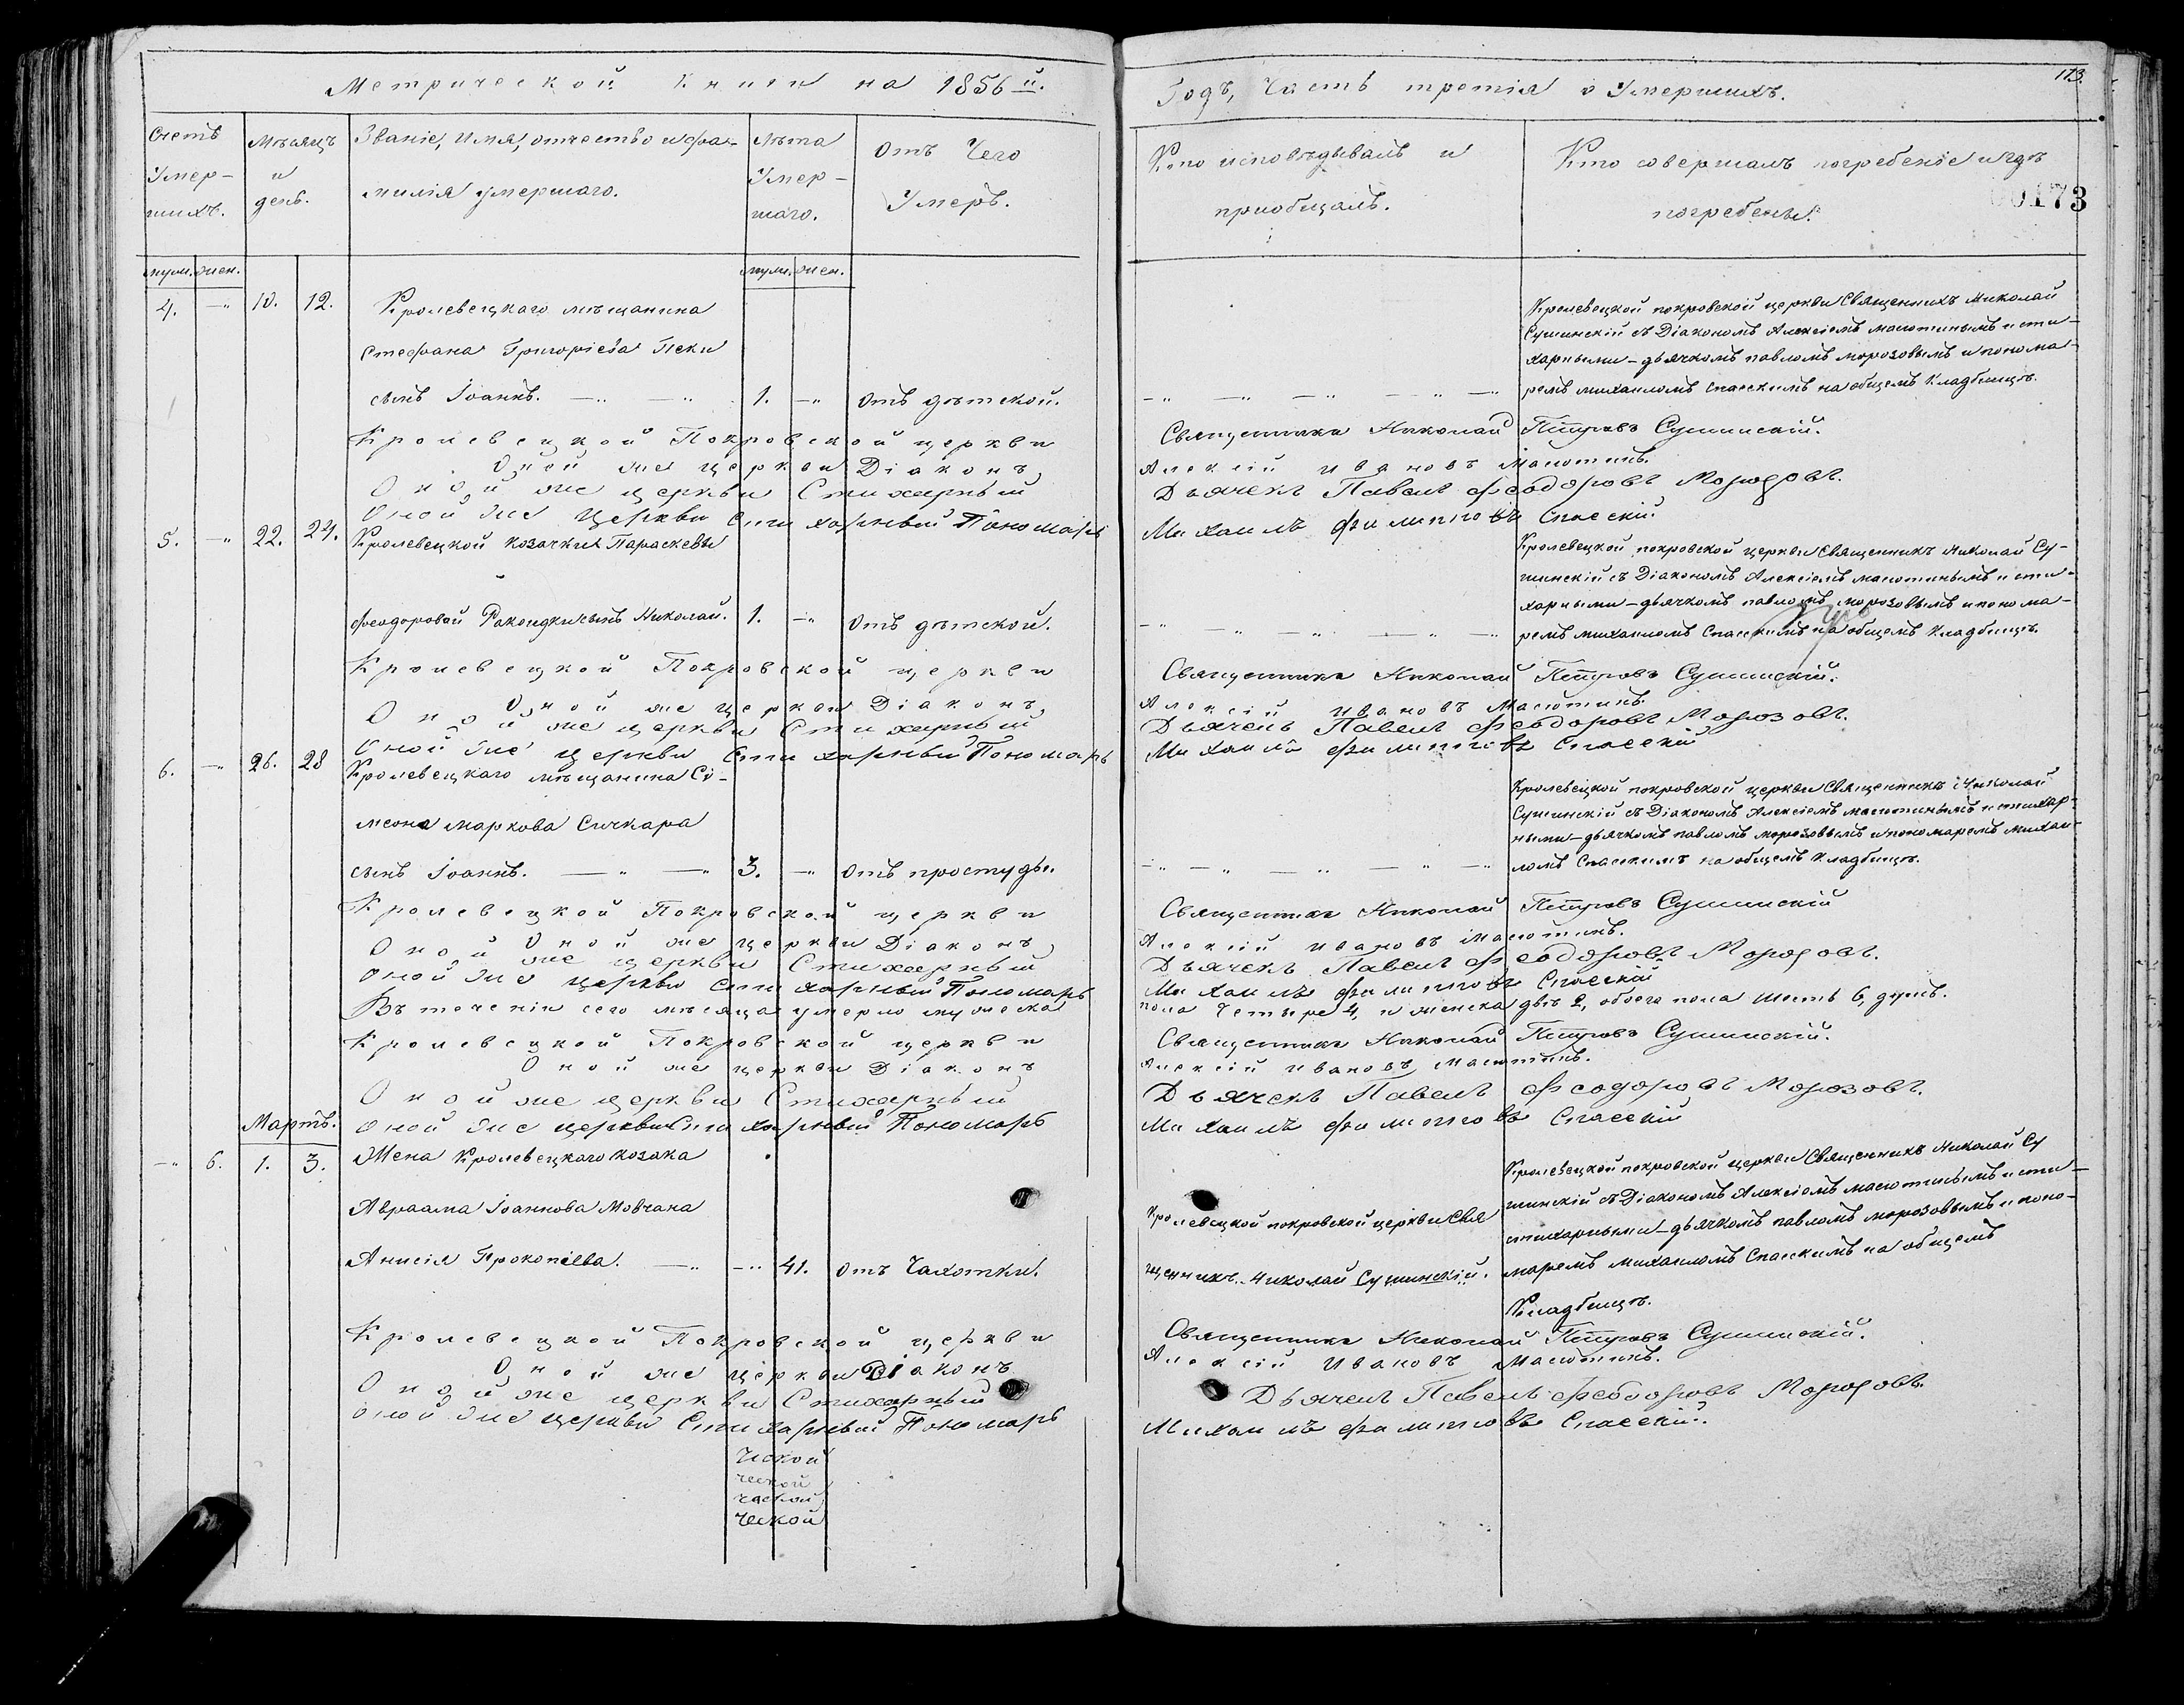 Метрической Книги на 1856й.
Годъ, Часть третія о Умершихъ.
113.
00173
Счетъ Умер-шихъ.
Мѣсяцъ и день.
Званіе, Имя, отчество и фа-
милія умершаго.
Лѣта Умер-шаго.
Отъ Чего
Умеръ.
Кто исповѣдывалъ и
приобщалъ.
Кто совершалъ погребеніе и гдѣ
погребены.
муж. жен.
муж. жен.
4. —" 10. 12. Кролевецкаго мѣщанина
Стефана Григоріева Пеки
сынъ Іоаннъ. —" —" 1. —" Отъ дѣтской.
Кролевецкой покровской церкви Священникъ Николай
Сушинскій съ Діакономъ Алексіемъ малютинымъ и сти-
харными-дьячкомъ павломъ морозовымъ и понома-
ремъ михаиломъ Спасскимъ на общемъ Кладбищѣ.
Кролевецкой Покровской церкви Священникъ Николай Петровъ Сушинскій.
Оной же церкви Діаконъ, Алексій Ивановъ Малютинъ.
Оной же церкви Стихарный Дьячекъ Павелъ Феодоровъ Морозовъ.
Оной же Церкви Стихарный Пономарь Михаилъ Филипповъ Спасскій.
5. —" 22. 24. Кролевецкой козачки Параскевы
Феодоровой Ракоидки сынъ Николай. 1. —" Отъ дѣтской.
Кролевецкой покровской церкви Священникъ Николай Су-
шинскій съ Діакономъ Алексіемъ малютинымъ и сти-
харными-дьячкомъ павломъ морозовымъ и понома-
ремъ михаиломъ Спасскимъ на общемъ Кладбищѣ.
Кролевецкой Покровской церкви Священникъ Николай Петровъ Сушинскій.
Оной же церкви Діаконъ, Алексій Ивановъ Малютинъ.
Оной же церкви Стихарный Дьячекъ Павелъ Феодоровъ Морозовъ.
Оной же Церкви Стихарный Пономарь Михаилъ Филипповъ Спасскій
6. —" 26. 28 Кролевецкаго мѣщанина Сі-
меона маркова Сичкара
сынъ Іоаннъ. —" —" 3. —" Отъ простуды.
Кролевецкой покровской церкви Священникъ Николай
Сушинскій съ Діакономъ Алексіемъ малютинымъ и стихар-
ными-дьячкомъ павломъ морозовымъ и пономаремъ михаи-
ломъ Спасскимъ на общемъ Кладбищѣ.
Кролевецкой Покровской церкви Священникъ Николай Петровъ Сушинскій
Оной же церкви Діаконъ, Алексій Ивановъ Малютинъ.
Оной же церкви Стихарный Дьячекъ Павелъ Феодоровъ Морозовъ.
Оной же церкви Стихарный Пономарь Михаилъ Филипповъ Спасскій
Въ теченіи сего мѣсяца умерло мужеска пола Четыре 4, и женска двѣ 2, обоего пола шесть 6, душъ.
Кролевецкой Покровской церкви Священникъ Николай Петровъ Сушинскій.
Оной же церкви Діаконъ Алексій Ивановъ Малютинъ.
Оной же церкви Стихарный Дьячекъ Павелъ Феодоровъ Морозовъ.
Оной же церкви Стихарный Пономарь Михаилъ Филипповъ Спасскій
Мартъ.
—" 6. 1. 3. Жена Кролевецкаго козака
Авраама Іоаннова Мовчана
Анисія Прокопіева. —" —" 41. Отъ Чахотки.
Кролевецкой покровской церкви Свя
щенникъ Николай Сушинскій.
Кролевецкой покровской церкви Священникъ Николай Су
шинскій съ Діакономъ Алексіемъ малютинымъ и сти-
стихарными-дьячкомъ павломъ морозовымъ и поно-
маремъ михаиломъ Спасскимъ на общемъ
Кладбищѣ.
Кролевецкой Покровской церкви Священникъ Николай Петровъ Сушинскій.
Оной же церкви Діаконъ Алексій Ивановъ Малютинъ.
Оной же церкви Стихарный Дьячекъ Павелъ Феодоровъ Морозовъ.
Оной же церкви Стихарный Пономарь Михаилъ Филипповъ Спасскій.
ческой
ческой
ческой
ческой